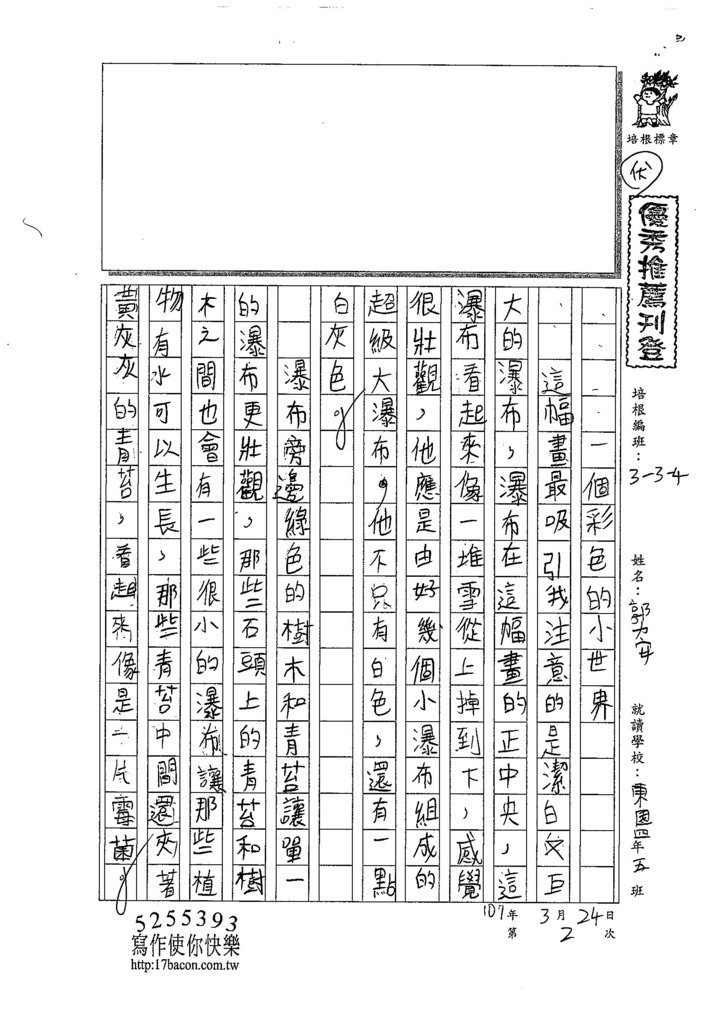 培根標章
優秀推薦刊登
培根編班：3-3-4
姓名：郭力安
就讀學校：東園四年五班
107年3月24日
第2次
一個彩色的小世界
這幅畫最吸引我注意的是潔白又巨
大的瀑布，瀑布在這幅畫的正中央，這
瀑布看起來像一堆雪從上掉到下，感覺
很壯觀，他應是由好幾個小瀑布組成的
超級大瀑布，他不只有白色，還有一點
白灰色。
瀑布旁邊綠色的樹木和青苔讓單一
的瀑布更壯觀，那些石頭上的青苔和樹
木之間也會有一些很小的瀑布讓那些植
物有水可以生長，那些青苔中間還夾著
黃灰灰的青苔，看起來像是一片霉菌。
5255393
寫作使你快樂
http:17bacon.com.tw